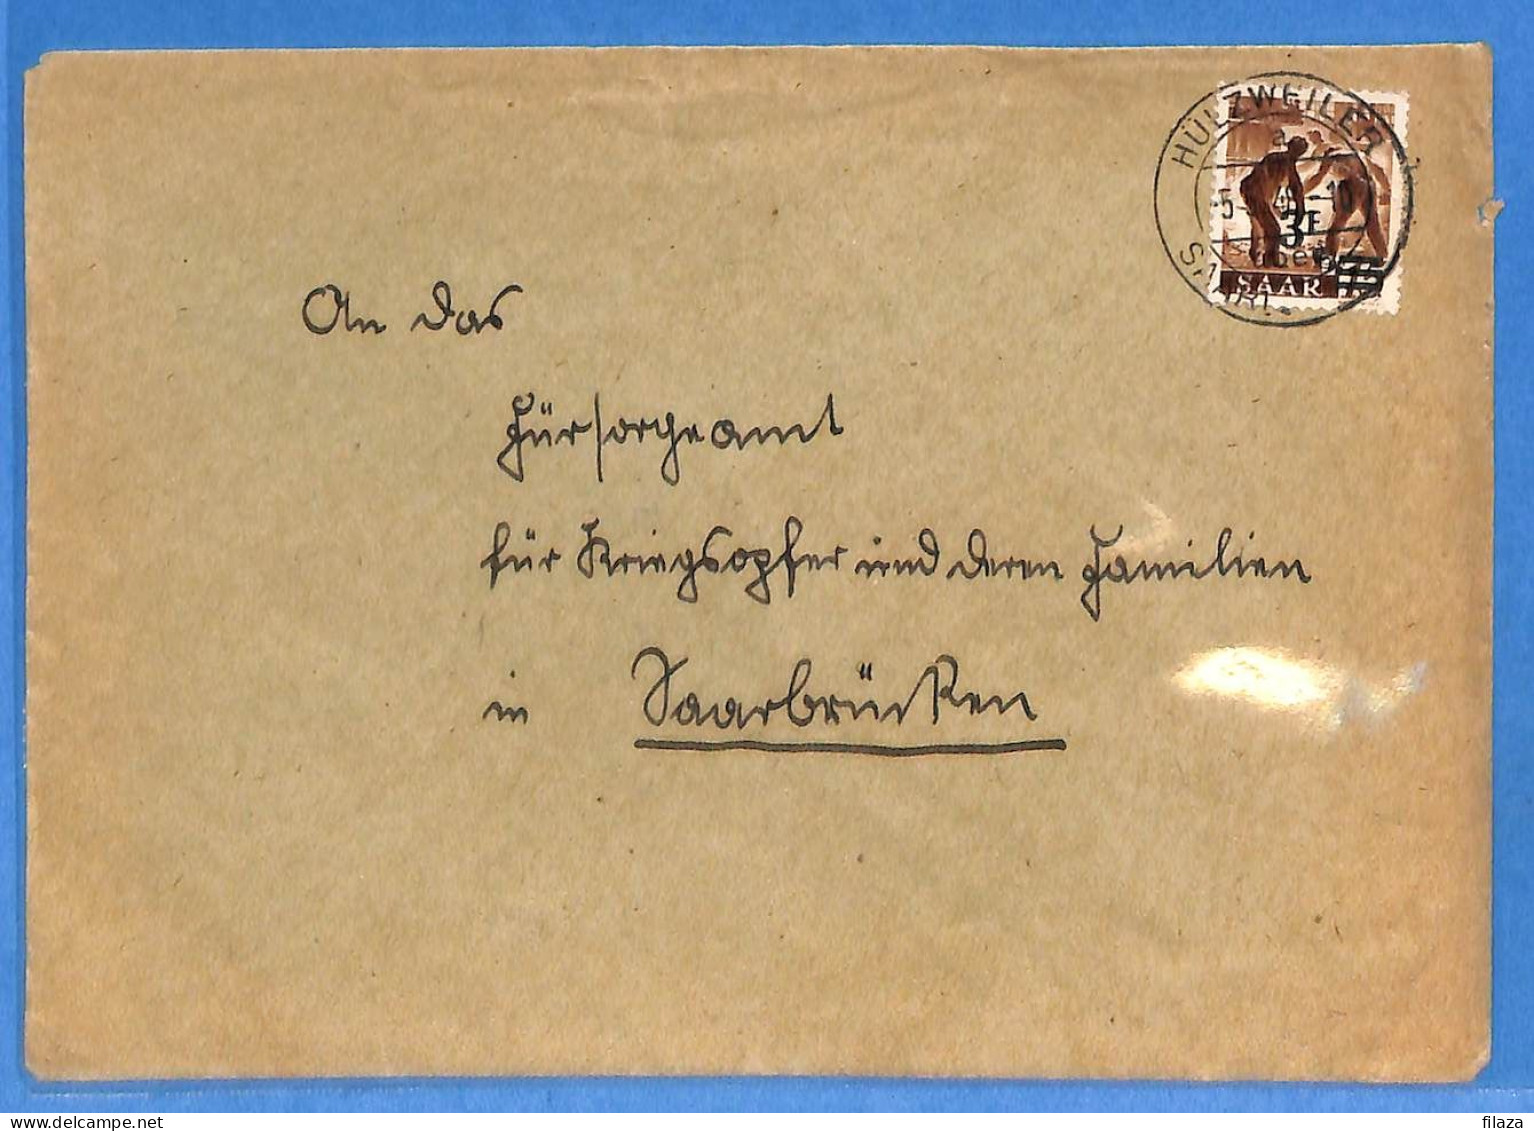 HÜLZWEILER
a
3F
SAAR
An das
Fürsorgeamt
für Kriegsopfer und deren Familien
in Saarbrücken
© delcampe.net
filaza